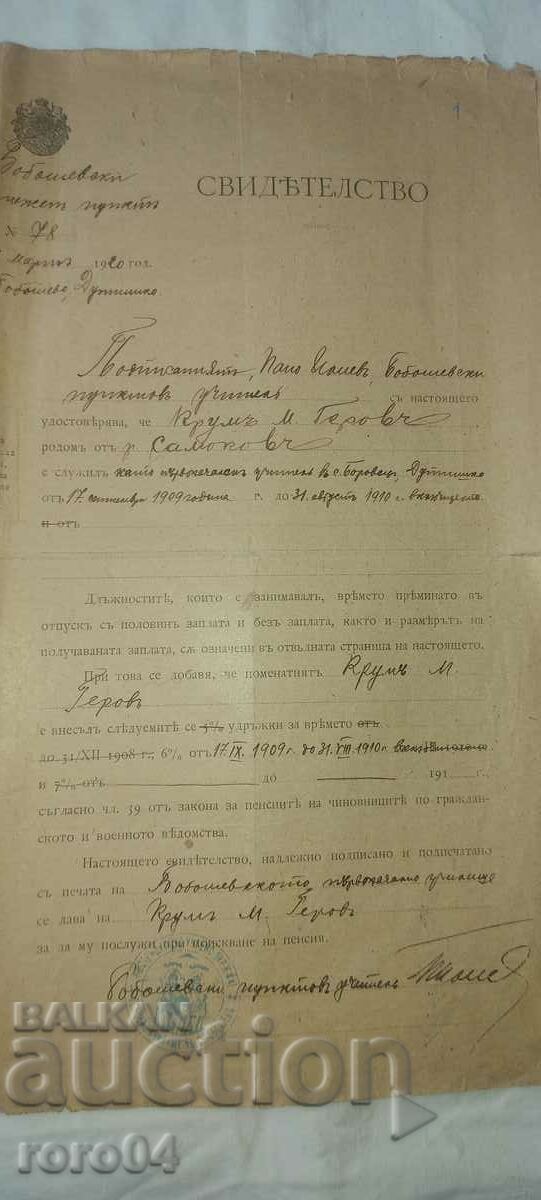 1
Бобошевски
пунктъ
№ 78
Мартъ 1920 год.
Бобошево, Дупнишко
СВИДѢТЕЛСТВО
Подписаниятъ, Пано Илиевъ, Бобошевски
пунктовъ учитель съ настоящето
удостовѣрява, че Крумъ М. Геровъ
родомъ отъ г. Самоковъ
е служилъ като първоначаленъ учитель въ с. Боровецъ, Дупнишко
отъ 17. септемврий 1909 година г. до 31. августъ 1910 г. включително
и отъ
Длъжноститѣ, които е занимавалъ, врѣмето прѣминато въ
отпускъ съ половинъ заплата и безъ заплата, както и размѣрътъ на
получаваната заплата, сѫ означени въ отвѫдната страница на настоящето.
При това се добавя, че поменатиятъ Крумъ М.
Геровъ
е внесълъ слѣдуемитѣ се 5% удръжки за врѣмето отъ
до 31/XII 1908 г., 6% отъ 17 IX. 1909 г. до 31. VIII 1910 г. включително
и 7% отъ до 191 г.,
съгласно чл. 39 отъ закона за пенсиитѣ на чиновницитѣ по граждан-
ското и военното вѣдомства.
Настоящето свидѣтелство, надлежно подписано и подпечатано
съ печата на Бобошевското първоначално училище
се дава на Крумъ М. Геровъ
за да му послужи при поискване на пенсия.
Бобошевски пунктовъ учитель
BALKAN
auction
roro04